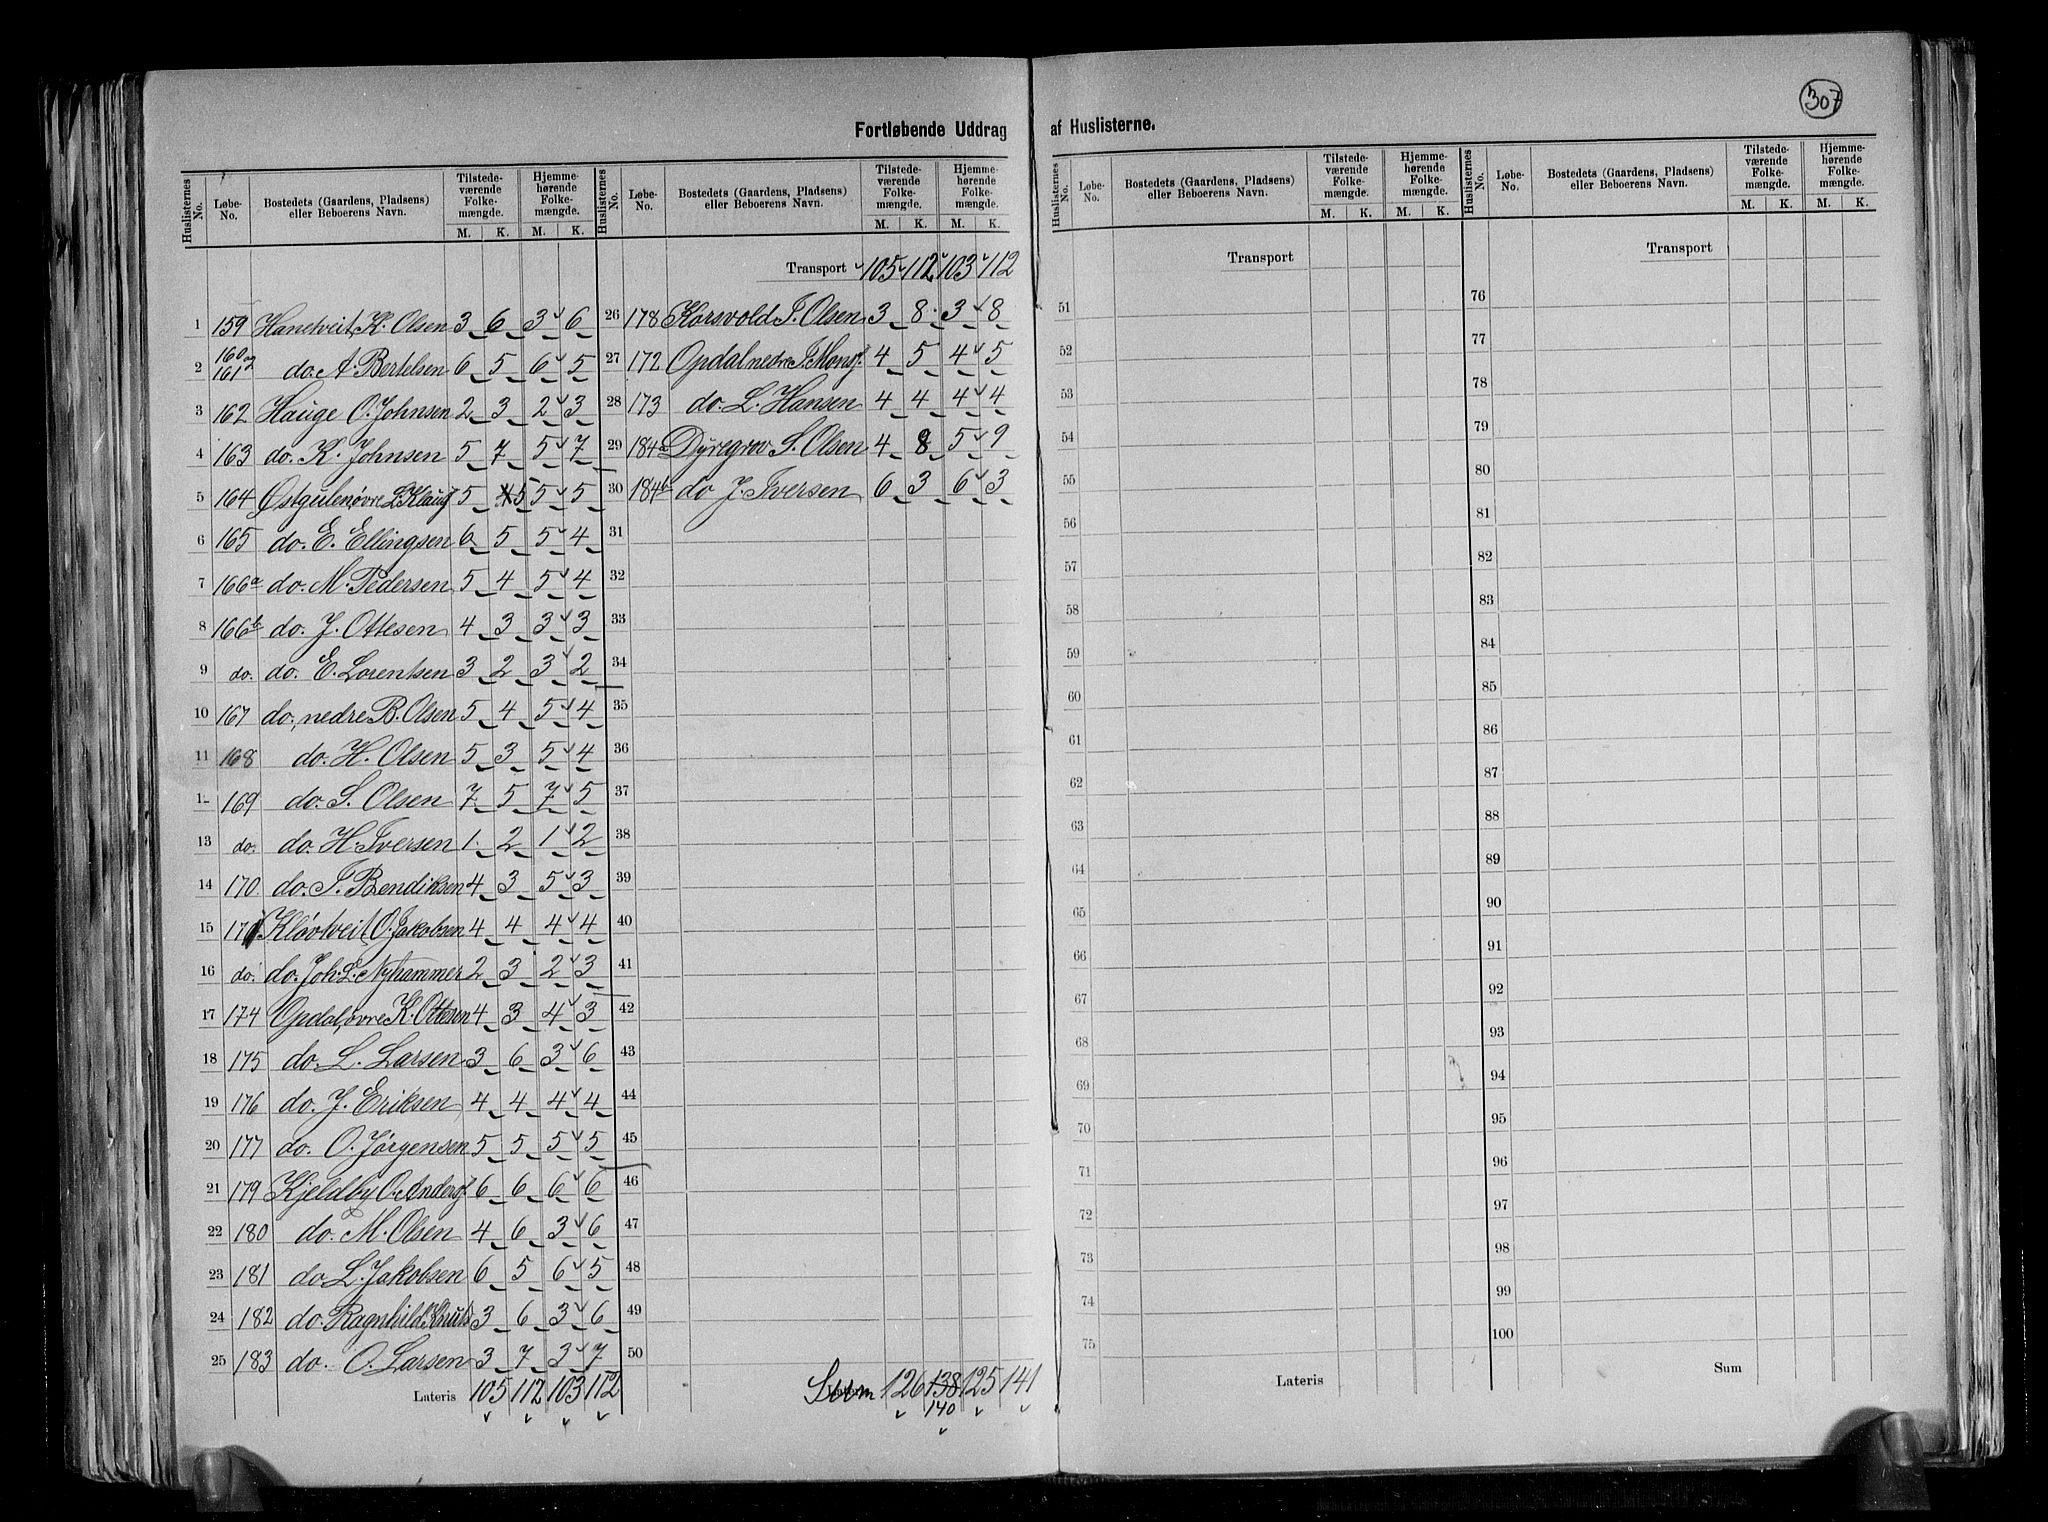 307
Fortløbende Uddrag af Huslisterne.
Huslisternes No. Løbe-No. Bostedets (Gaardens, Pladsens) eller Beboerens Navn. Tilstedeværende Folkemængde. M. K. Hjemmehørende Folkemængde. M. K.
1 159 Hanetveit, K. Olsen 3 6 3 6
2 160 og 161 do. A. Bertelsen 6 5 6 5
3 162 Hauge O. Johnsen 2 3 2 3
4 163 do. K. Johnsen 5 7 5 7
5 164 Østgulen øvre L. Klausf 5 5 5 5
6 165 do. E. Ellingsen 6 5 5 4
7 166a do. M. Pedersen 5 4 5 4
8 166b do. J. Ottesen 4 3 3 3
9 do. do. E. Lorentsen 3 2 3 2
10 167 do. nedre B. Olsen 5 4 5 4
11 168 do. H. Olsen 5 3 5 4
12 169 do. S. Olsen 7 5 7 5
13 do. do. H. Iversen 1 2 1 2
14 170 do. T. Bendiksen 4 3 5 3
15 171 Kløvtveit O. Jakobsen 4 4 4 4
16 do. do. Joh. L. Nyhammer 2 3 2 3
17 174 Opdal, øvre K. Ottesen 4 3 4 3
18 175 do. L. Larsen 3 6 3 6
19 176 do. J. Eriksen 4 4 4 4
20 177 do. O. Jørgensen 5 5 5 5
21 179 Kjeldby O. Andersf 6 6 6 6
22 180 do. M. Olsen 4 6 3 6
23 181 do L. Jakobsen 6 5 6 5
24 182 do. Ragnhild Knuts 3 6 3 6
25 183 do. O. Larsen 3 7 3 7
Lateris 105 112 103 112
Huslisternes No. Løbe-No. Bostedets (Gaardens, Pladsens) eller Beboerens Navn. Tilstedeværende Folkemængde. M. K. Hjemmehørende Folkemængde. M. K.
Transport 105 112 103 112
26 178 Korsvold T. Olsen 3 8 3 8
27 172 Opdal nedre T. Monsf 4 5 4 5
28 173 do. L. Hansen 4 4 4 4
29 184a Dyregrov S. Olsen 4 8 5 9
30 184b do J. Iversen 6 3 6 3
31
32
33
34
35
36
37
38
39
40
41
42
43
44
45
46
47
48
49
50
Sum 126 138 125 141
140
Huslisternes No. Løbe-No. Bostedets (Gaardens, Pladsens) eller Beboerens Navn. Tilstedeværende Folkemængde. M. K. Hjemmehørende Folkemængde. M. K.
Transport
51
52
53
54
55
56
57
58
59
60
61
62
63
64
65
66
67
68
69
70
71
72
73
74
75
Lateris
Huslisternes No. Løbe-No. Bostedets (Gaardens, Pladsens) eller Beboerens Navn. Tilstedeværende Folkemængde. M. K. Hjemmehørende Folkemængde. M. K.
Transport
76
77
78
79
80
81
82
83
84
85
86
87
88
89
90
91
92
93
94
95
96
97
98
99
100
Sum